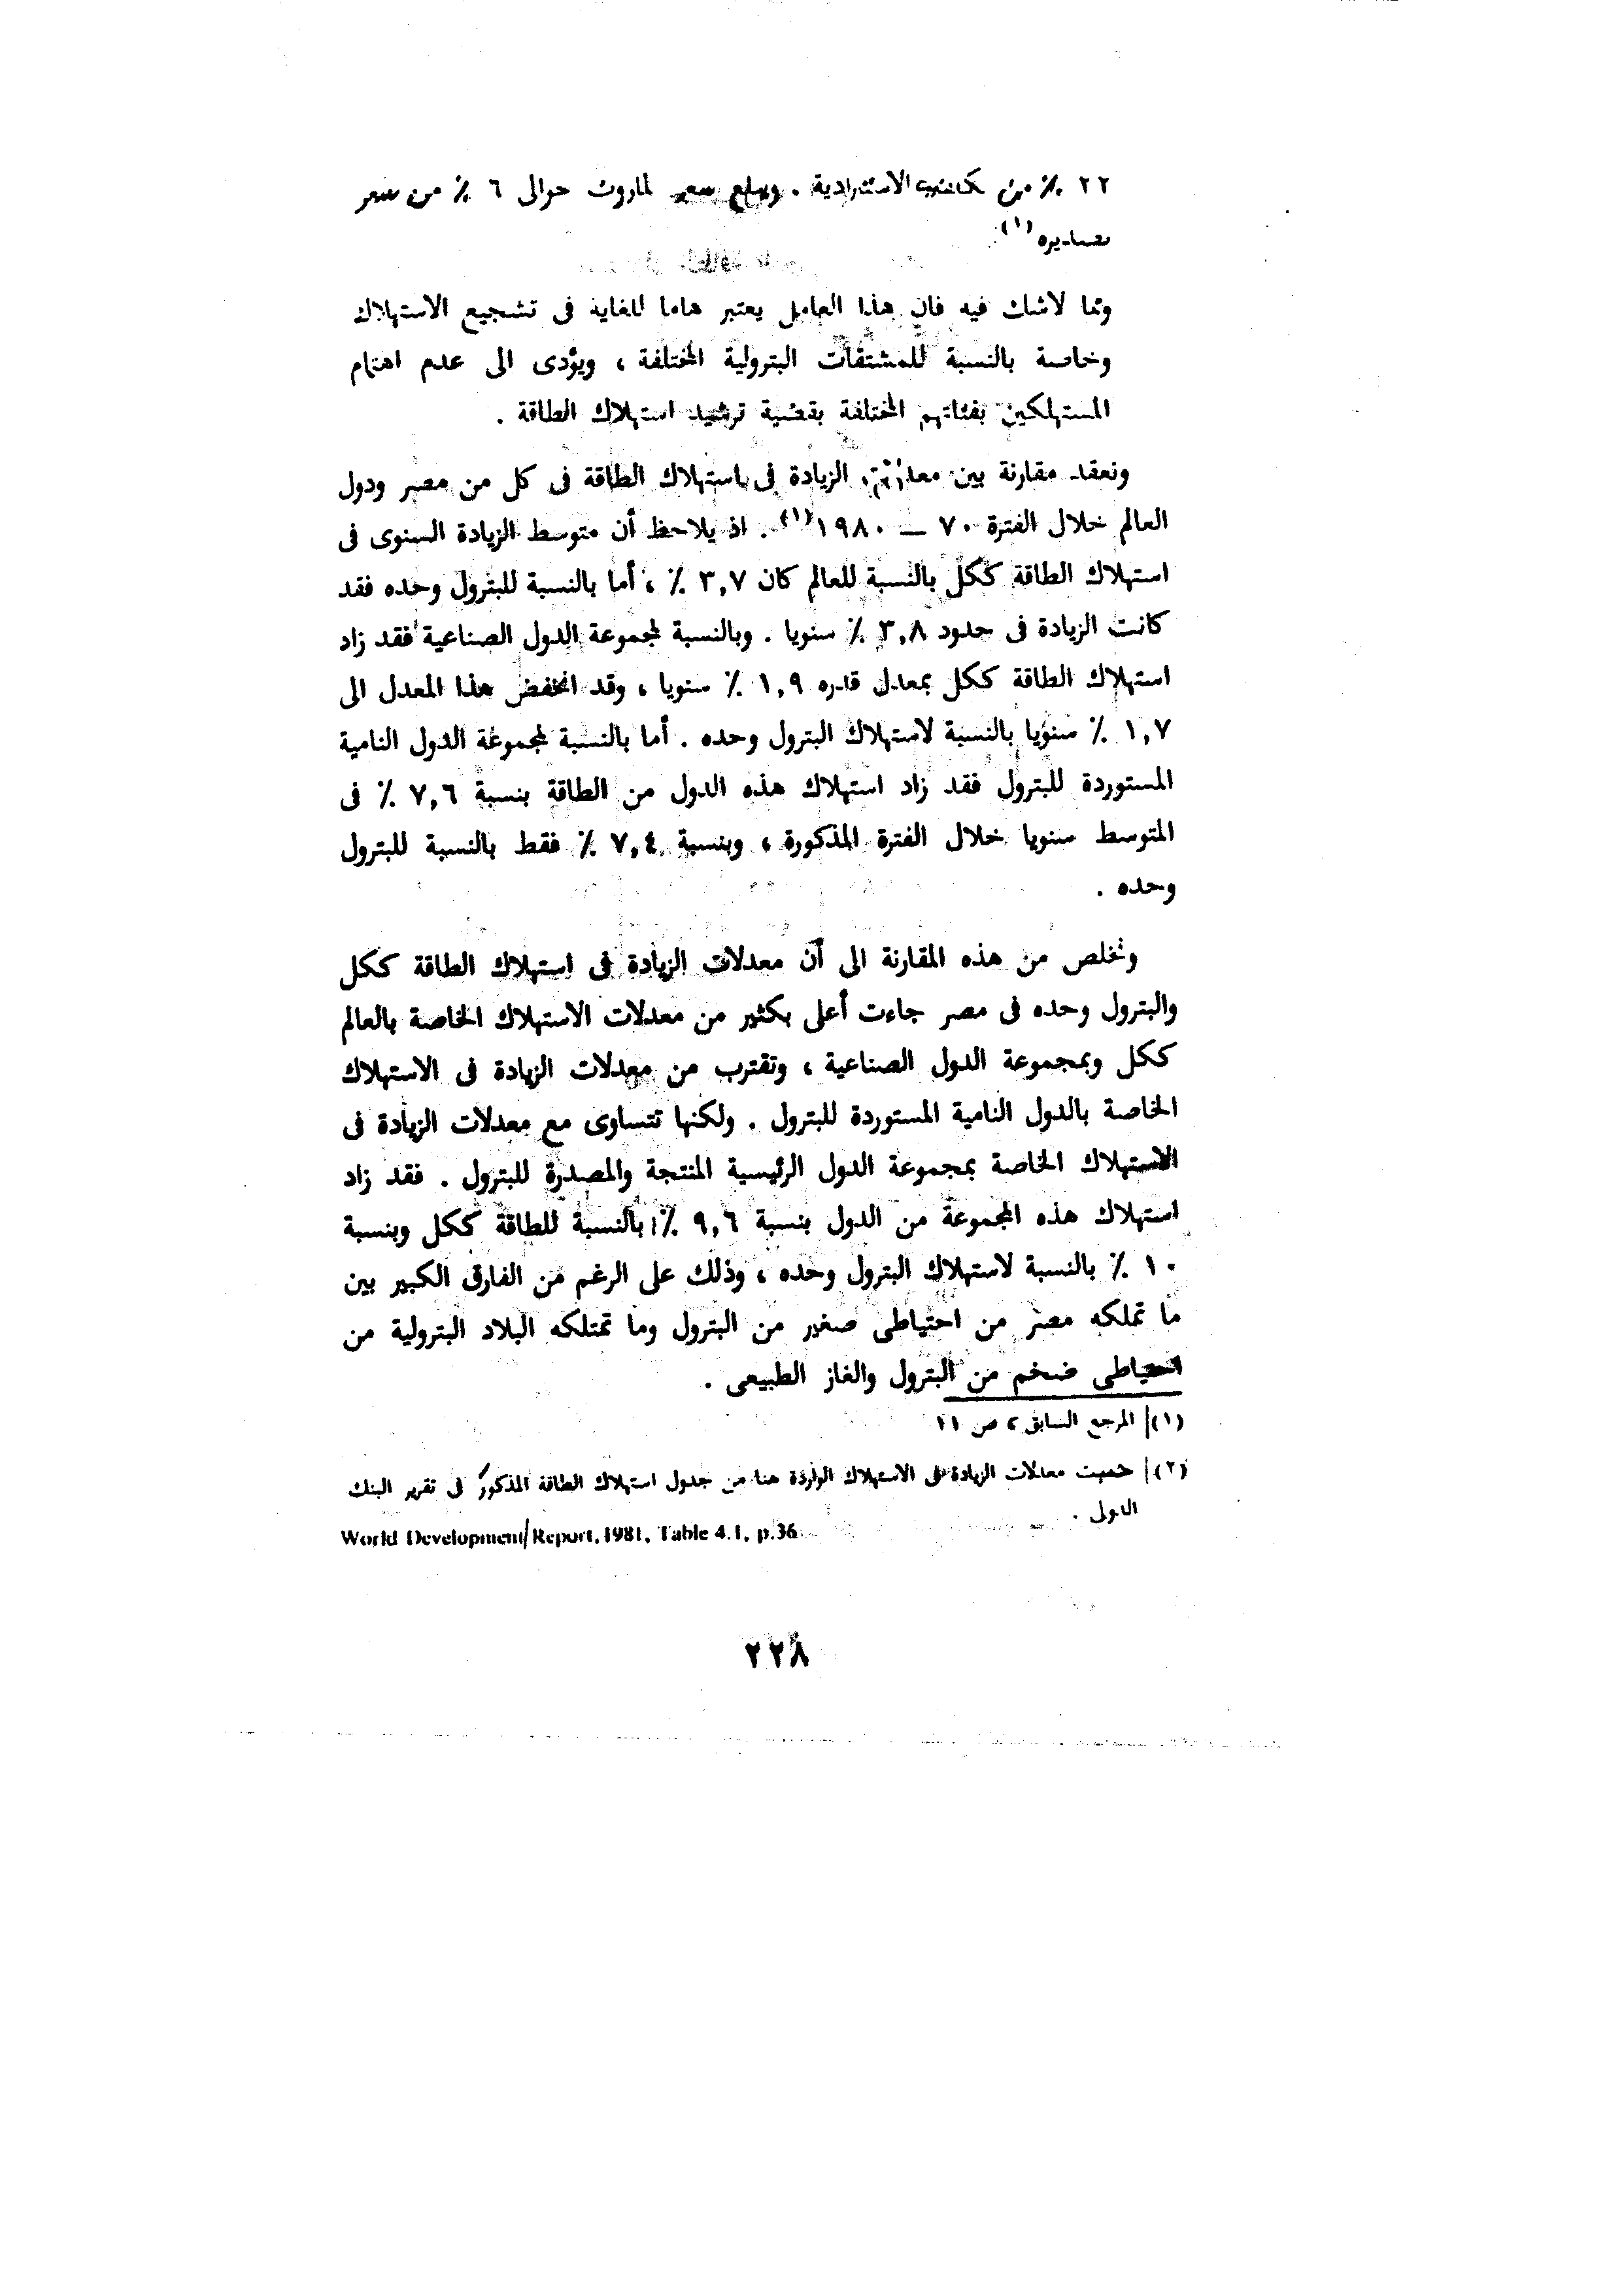 ٢٢ ٪ من تكلفته الاستيرادية . ويبلغ سعر المازوت حوالى ٦ ٪ من سعر
تصديره (١)
ومما لاشك فيه فان هذا العامل يعتبر هاما للغاية فى تشجيع الاستهلاك
وخاصة بالنسبة للمشتقات البترولية المختلفة ، ويؤدى الى عدم اهتمام
المستهلكين بفئاتهم المختلفة بقضية ترشيد استهلاك الطاقة .
ونعقد مقارنة بين معدلات الزيادة فى استهلاك الطاقة فى كل من مصر ودول
العالم خلال الفترة ٧٠ — ١٩٨٠ (١) . اذ يلاحظ أن متوسط الزيادة السنوى فى
استهلاك الطاقة ككل بالنسبة للعالم كان ٣,٧ ٪ ، أما بالنسبة للبترول وحده فقد
كانت الزيادة فى حدود ٣,٨ ٪ سنويا . وبالنسبة لمجموعة الدول الصناعية فقد زاد
استهلاك الطاقة ككل بمعدل قدره ١,٩ ٪ سنويا ، وقد انخفض هذا المعدل الى
١,٧ ٪ سنويا بالنسبة لاستهلاك البترول وحده . أما بالنسبة لمجموعة الدول النامية
المستوردة للبترول فقد زاد استهلاك هذه الدول من الطاقة بنسبة ٧,٦ ٪ فى
المتوسط سنويا خلال الفترة المذكورة ، وبنسبة ٧,٤ ٪ فقط بالنسبة للبترول
وحده .
ونخلص من هذه المقارنة الى أن معدلات الزيادة فى استهلاك الطاقة ككل
والبترول وحده فى مصر جاءت أعلى بكثير من معدلات الاستهلاك الخاصة بالعالم
ككل وبمجموعة الدول الصناعية ، وتقترب من معدلات الزيادة فى الاستهلاك
الخاصة بالدول النامية المستوردة للبترول . ولكنها تتساوى مع معدلات الزيادة فى
الاستهلاك الخاصة بمجموعة الدول الرئيسية المنتجة والمصدرة للبترول . فقد زاد
استهلاك هذه المجموعة من الدول بنسبة ٩,٦ ٪ بالنسبة للطاقة ككل وبنسبة
١٠ ٪ بالنسبة لاستهلاك البترول وحده ، وذلك على الرغم من الفارق الكبير بين
ما تملكه مصر من احتياطى صغير من البترول وما تمتلكه البلاد البترولية من
احتياطى ضخم من البترول والغاز الطبيعى .
(١) المرجع السابق ، ص ١١
(٢) حسبت معدلات الزيادة فى الاستهلاك الواردة هنا من جدول استهلاك الطاقة المذكور فى تقرير البنك
الدولى .
World Development Report, 1981, Table 4.1, p.36
٢٢٨